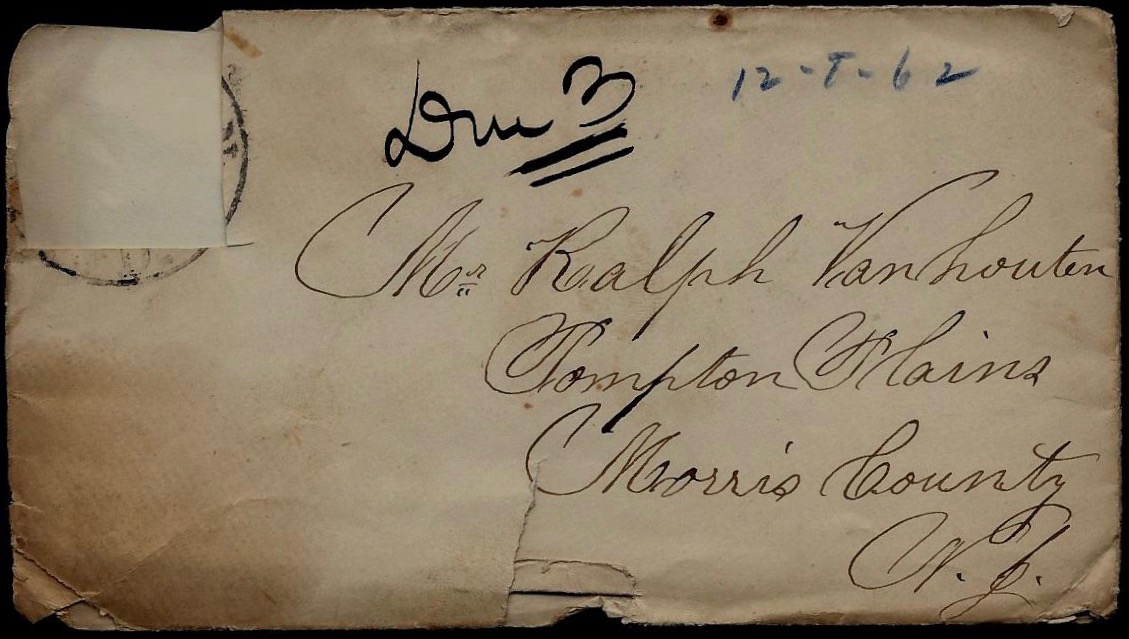 Due 3
12-8-62
Mr Ralph Vanhouten
Pompton Plains
Morris County
N. J.